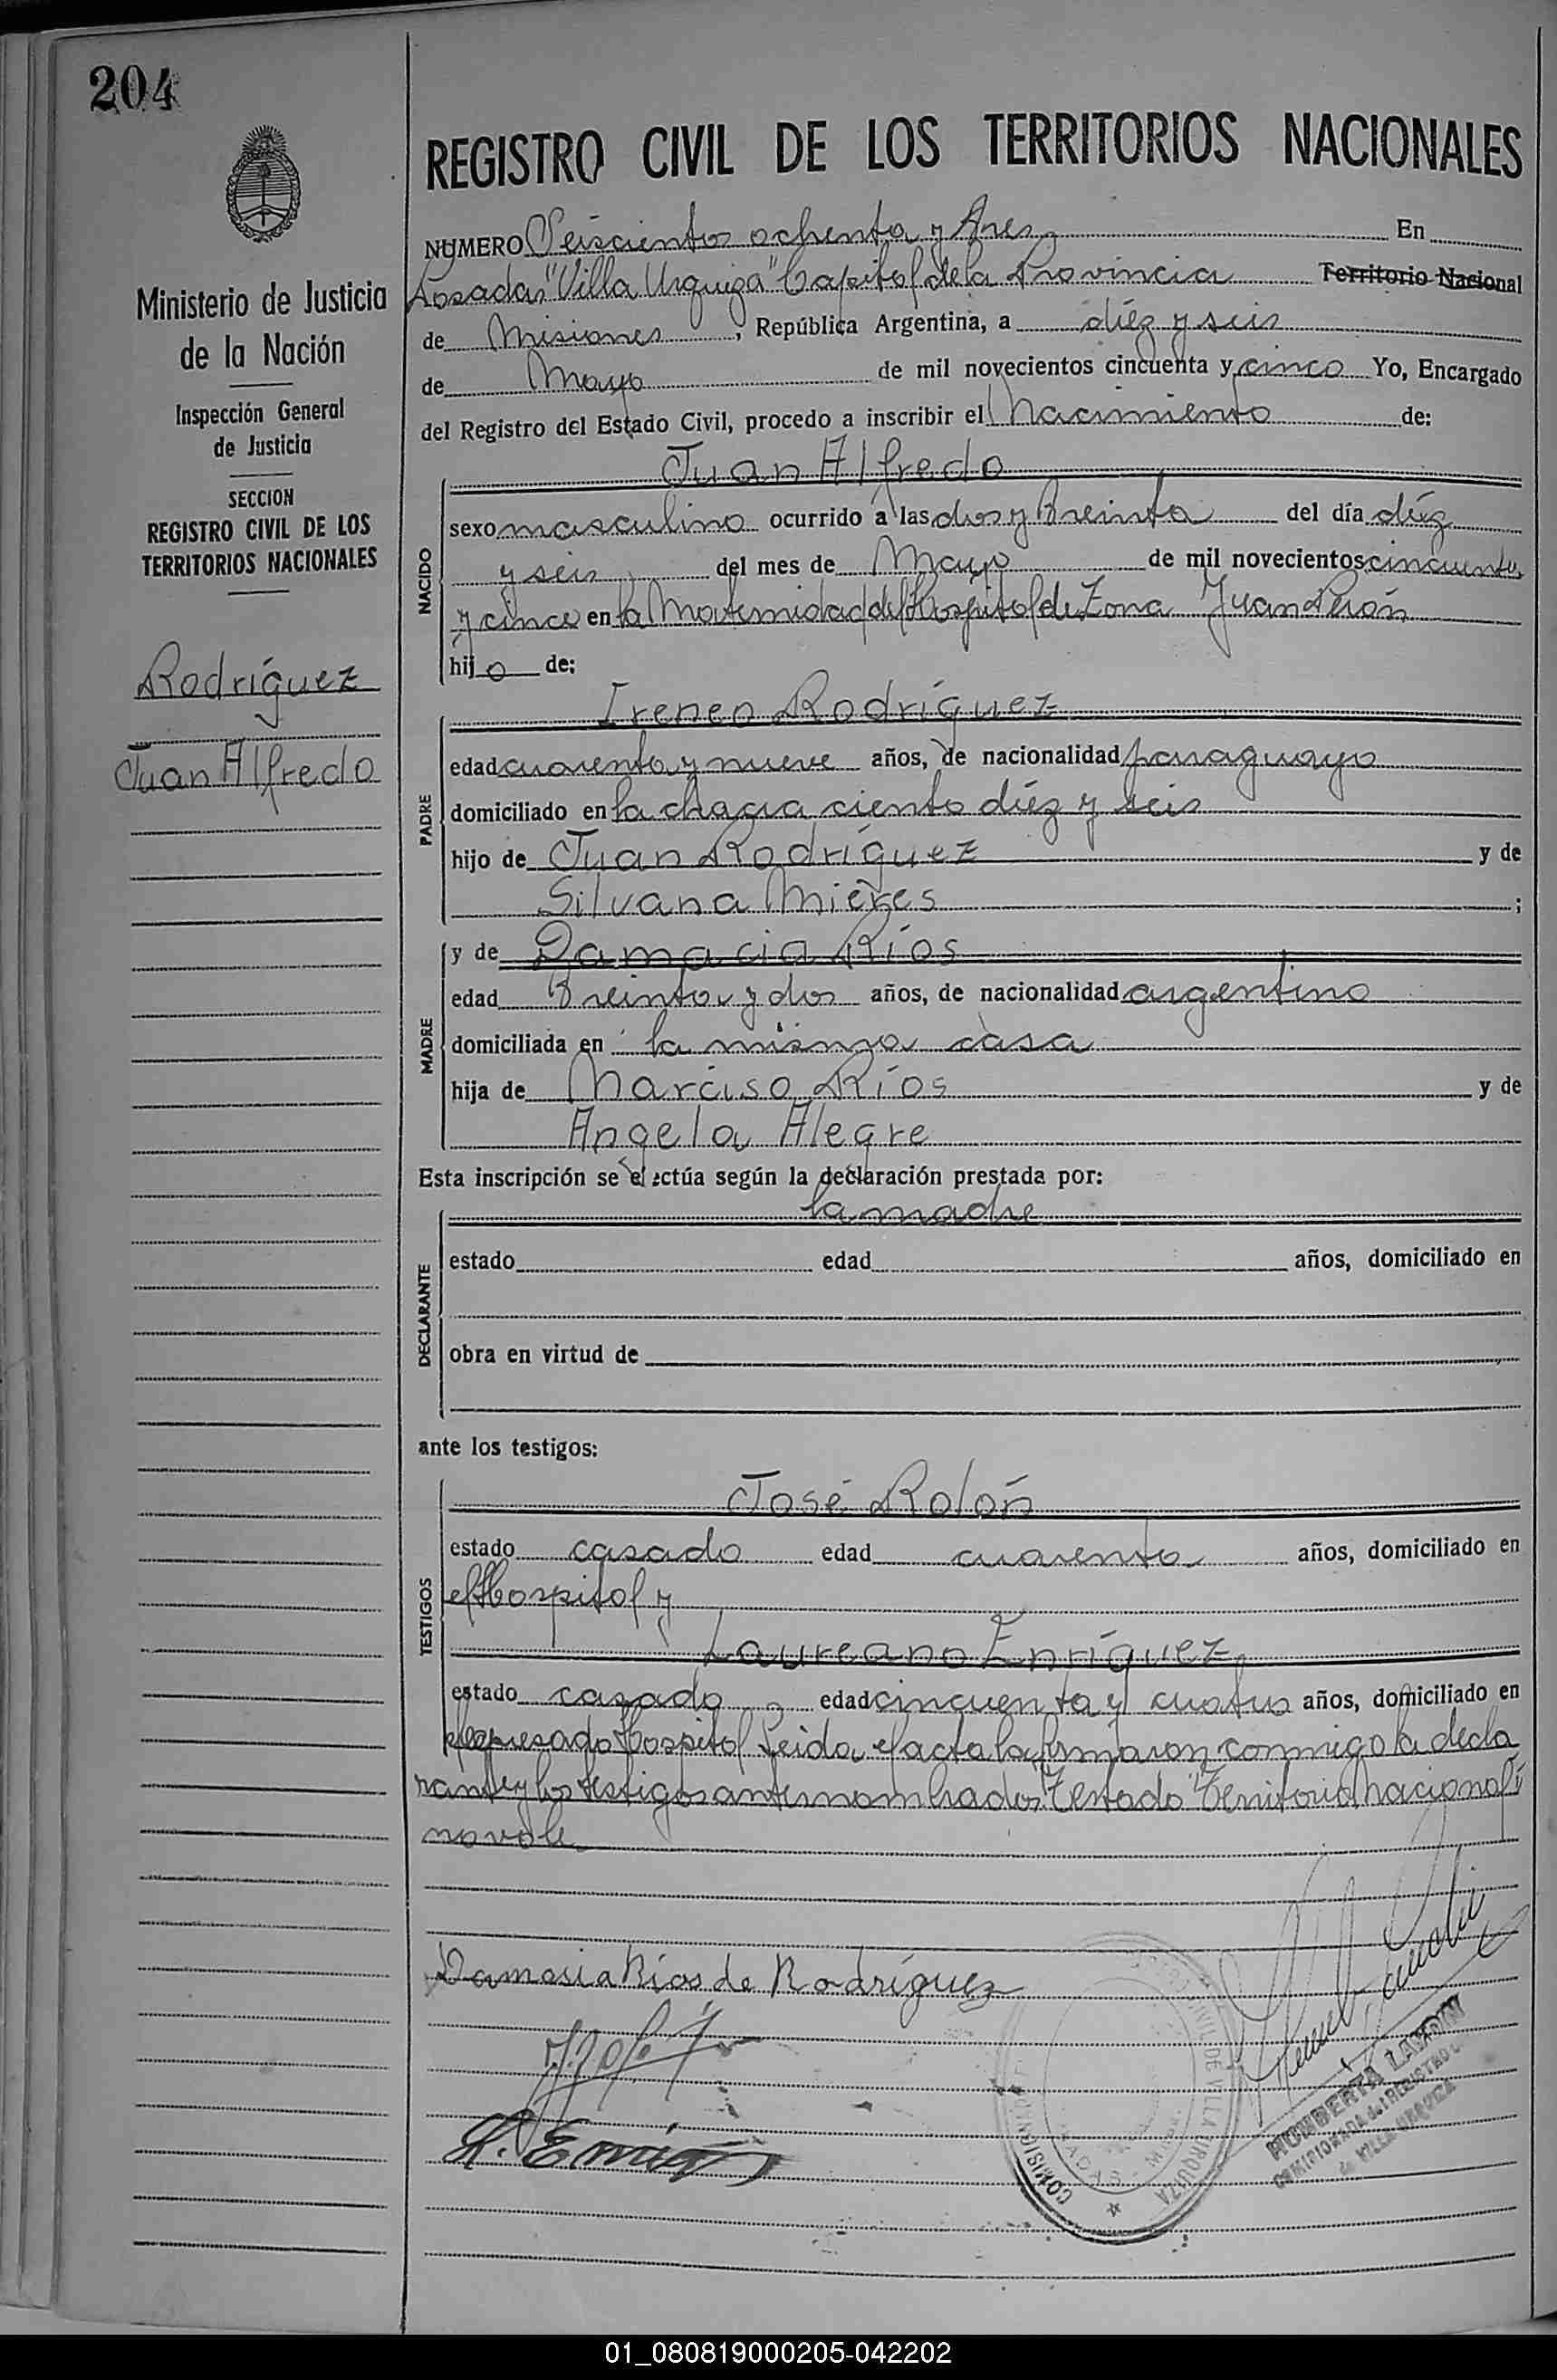 204
REGISTRO CIVIL DE LOS TERRITORIOS NACIONALES
Ministerio de Justicia
de la Nación
Inspección General
de Justicia
SECCION
REGISTRO CIVIL DE LOS
TERRITORIOS NACIONALES
Rodríguez
Juan Alfredo
NUMERO Seiscientos ochenta y tres En
Posadas "Villa Urquiza" Capital de la Provincia Territorio Nacional
de Misiones, República Argentina, a diéz y seis
de Mayo de mil novecientos cincuenta y cinco Yo, Encargado
del Registro del Estado Civil, procedo a inscribir el Nacimiento de:
NACIDO
Juan Alfredo
sexo masculino ocurrido a las dos y treinta del día diéz
y seis del mes de Mayo de mil novecientos cincuenta
y cinco en la Maternidad del Hospital de Zona Juan Perón
hijo de:
PADRE
Ireneo Rodríguez
edad cuarenta y nueve años, de nacionalidad paraguayo
domiciliado en la chacra ciento diéz y seis
hijo de Juan Rodríguez y de
Silvana Mieres ;
MADRE
y de Damacia Ríos
edad treinta y dos años, de nacionalidad argentino
domiciliada en la misma casa
hija de Narciso Ríos y de
Angela Alegre
Esta inscripción se efectúa según la declaración prestada por:
DECLARANTE
la madre
estado edad años, domiciliado en
obra en virtud de
ante los testigos:
TESTIGOS
José Rolón
estado casado edad cuarenta años, domiciliado en
el Hospital y
Laureano Enríquez
estado casado edad cincuenta y cuatro años, domiciliado en
el expresado Hospital Leida el acta la firmaron conmigo la decla
rante y los testigos antes nombrados Testado "Territorio Nacional"
no vale
Damasia Ríos de Rodríguez
L. Enriq
CIVIL DE VILLA URQUIZA
HUMBERTA LANDIN
COMISIONADA del REGISTRO
de VILLA URQUIZA
01_080819000205-042202